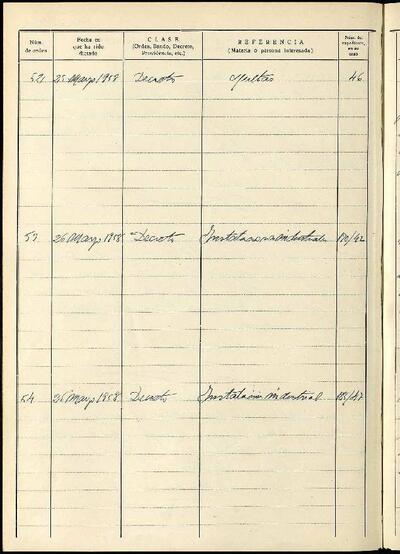 Núm. de orden
Fecha en que ha sido dictado
CLASE
(Orden, Bando, Decreto, Providencia, etc.)
REFERENCIA
(Materia o persona interesada)
Núm. del expediente, en su caso
52 25 Marzo 1958 Decreto Multas 46
53 26 Marzo 1958 Decreto
54 26 Marzo 1958 Decreto Instalación industrial